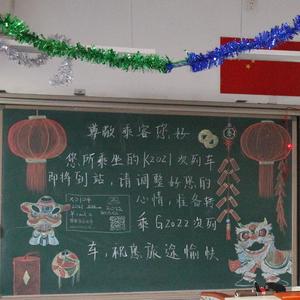 尊敬乘客您好
您所乘坐的K2021次列车
即将到站，请调整好您的
心情，准备转
乘G2022次列
车，祝您旅途愉快